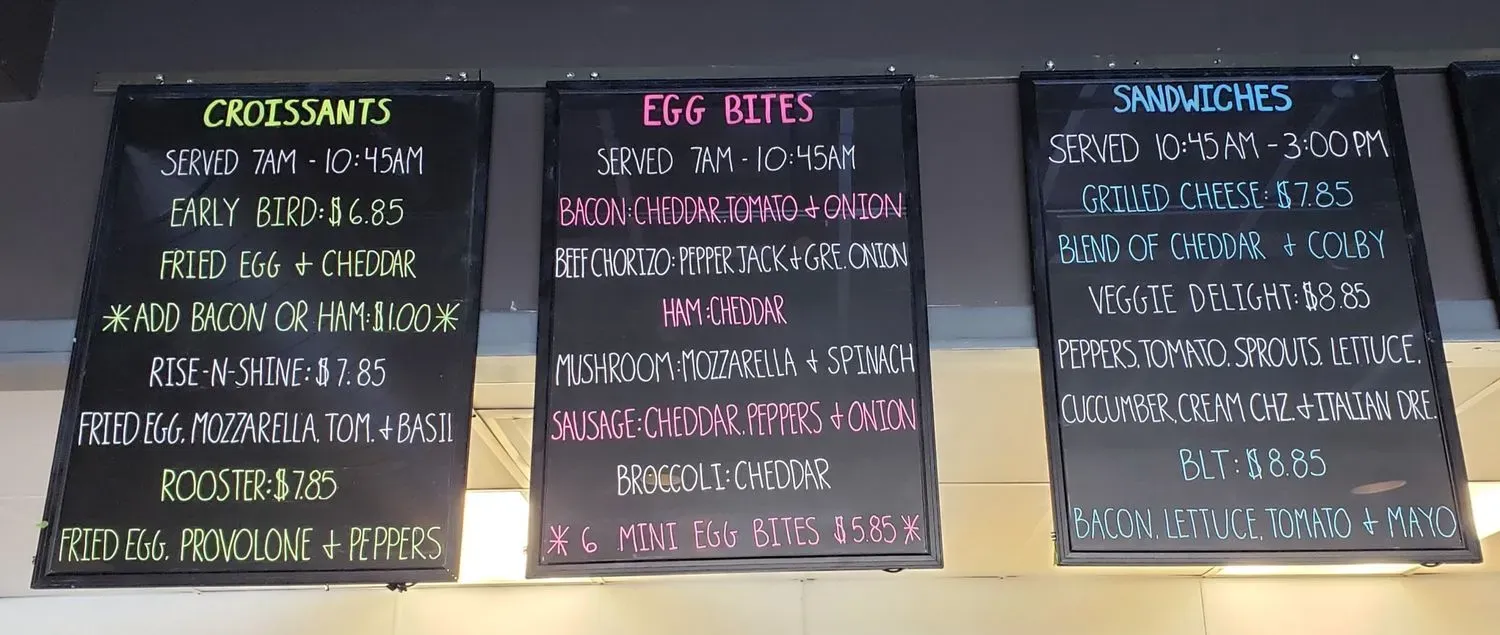 CROISSANTS
SERVED 7AM - 10:45AM
EARLY BIRD: $6.85
FRIED EGG & CHEDDAR
*ADD BACON OR HAM: $1.00*
RISE-N-SHINE: $7.85
FRIED EGG, MOZZARELLA, TOM. & BASIL
ROOSTER: $7.85
FRIED EGG, PROVOLONE & PEPPERS
EGG BITES
SERVED 7AM - 10:45AM
BACON: CHEDDAR, TOMATO & ONION
BEEF CHORIZO: PEPPER JACK & GRE. ONION
HAM: CHEDDAR
MUSHROOM: MOZZARELLA & SPINACH
SAUSAGE: CHEDDAR, PEPPERS & ONION
BROCCOLI: CHEDDAR
* 6 MINI EGG BITES $5.85 *
SANDWICHES
SERVED 10:45 AM - 3:00 PM
GRILLED CHEESE: $7.85
BLEND OF CHEDDAR & COLBY
VEGGIE DELIGHT: $8.85
PEPPERS, TOMATO, SPROUTS, LETTUCE,
CUCCUMBER, CREAM CHZ. & ITALIAN DRE.
BLT: $8.85
BACON, LETTUCE, TOMATO & MAYO